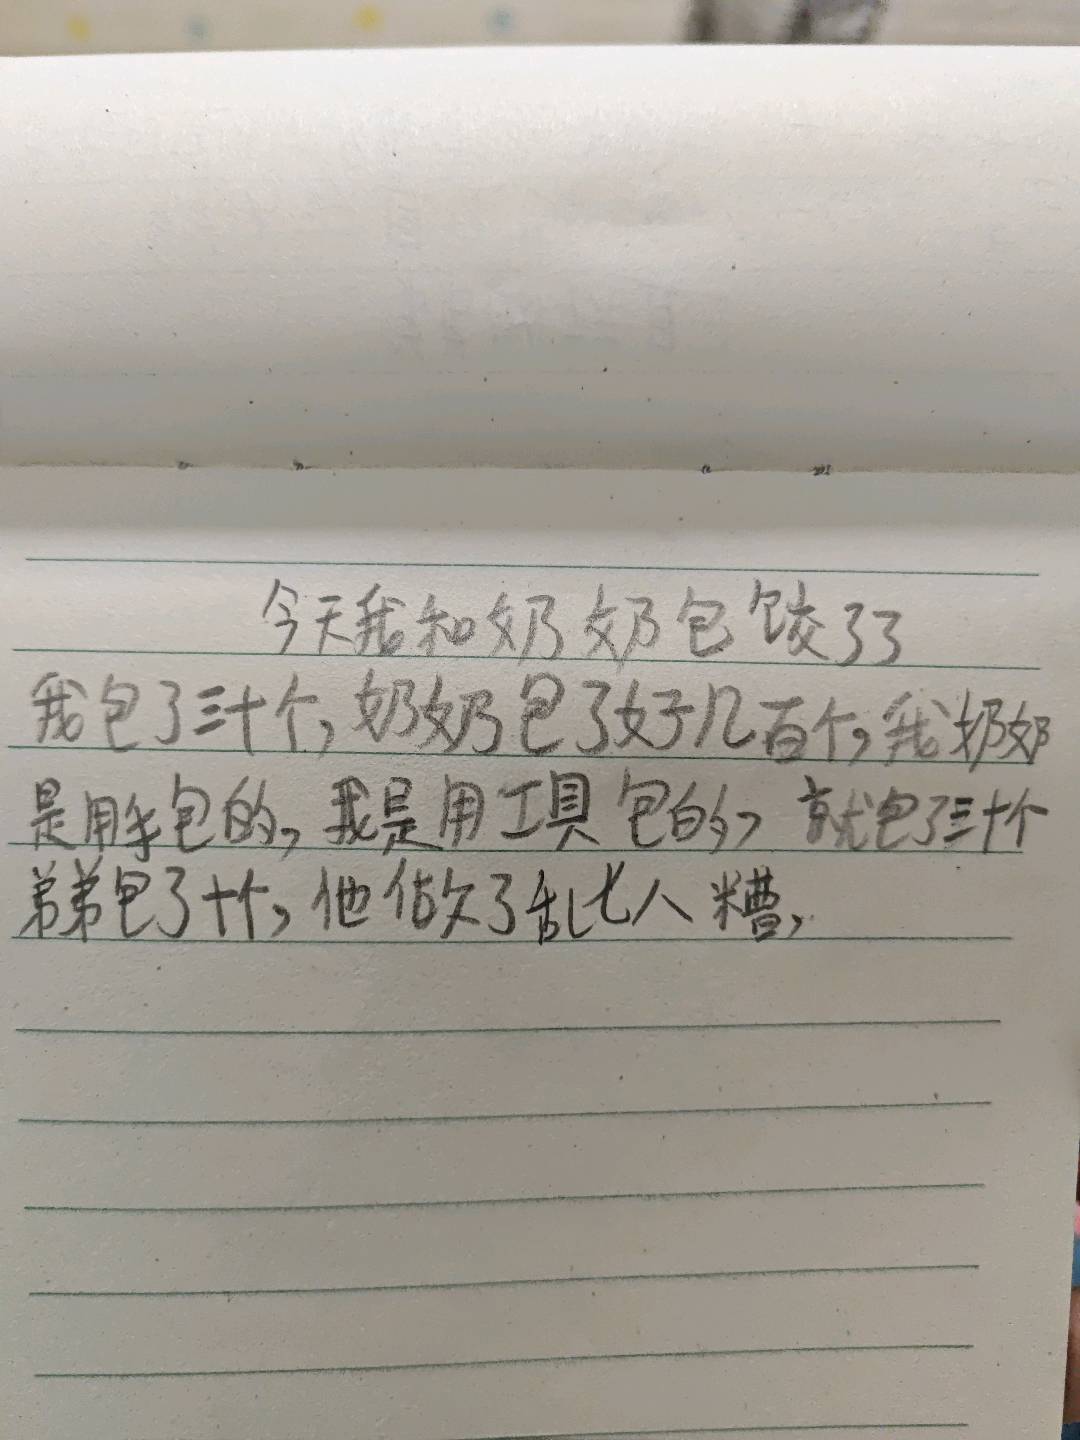 今天我和奶奶包饺了了
我包了三十个,奶奶包了好几百个,我奶奶
是用手包的,我是用工具包的,就包了三十个
弟弟包了十个,他做了乱七人糟,